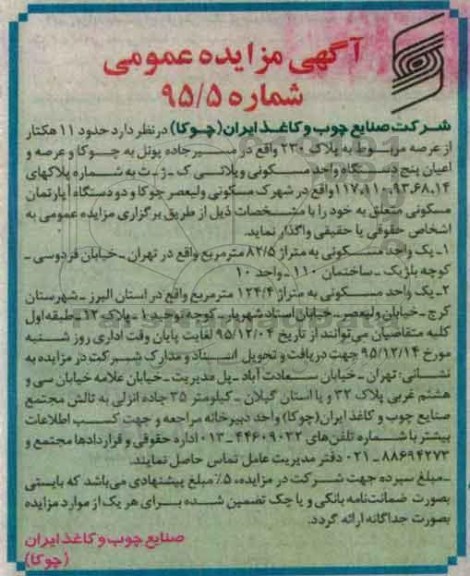 آگهی مزایده عمومی
شماره ۹۵/۵
شرکت صنایع چوب و کاغذ ایران (چوکا) در نظر دارد حدود ۱۱ هکتار
از عرصه مربوط به پلاک ۲۳۰ واقع در مسیر جاده پونل به چوکا و عرصه و
اعیان پنج دستگاه واحد مسکونی ویلائی ک - ژ - ث به شماره پلاکهای
۱۱۷،۱۱۰،۹۳،۶۸،۱۴ واقع در شهرک مسکونی ولیعصر چوکا و دو دستگاه آپارتمان
مسکونی متعلق به خود را با مشخصات ذیل از طریق برگزاری مزایده عمومی به
اشخاص حقوقی یا حقیقی واگذار نماید.
۱ـ یک واحد مسکونی به متراژ ۸۲/۵ مترمربع واقع در تهران ـ خیابان فردوسی ـ
کوچه بلژیک ـ ساختمان ۱۱۰ ـ واحد ۱۰
۲ـ یک واحد مسکونی به متراژ ۱۲۴/۴ مترمربع واقع در استان البرز ـ شهرستان
کرج ـ خیابان ولیعصر ـ خیابان استاد شهریار ـ کوچه توحید ۱ ـ پلاک ۱۲ ـ طبقه اول
کلیه متقاضیان می‌توانند از تاریخ ۹۵/۱۲/۰۴ لغایت پایان وقت اداری روز شنبه
مورخ ۹۵/۱۲/۱۴ جهت دریافت و تحویل اسناد و مدارک شرکت در مزایده به
نشانی: تهران ـ خیابان سعادت آباد ـ پل مدیریت ـ خیابان علامه خیابان سی و
هشتم غربی پلاک ۳۲ و یا استان گیلان ـ کیلومتر ۳۵ جاده انزلی به تالش مجتمع
صنایع چوب و کاغذ ایران (چوکا) واحد دبیرخانه مراجعه و جهت کسب اطلاعات
بیشتر با شماره تلفن های ۴۴۶۰۹۰۳۲ ـ ۰۱۳ اداره حقوقی و قراردادها مجتمع و
۸۸۶۹۴۲۷۳ ـ ۰۲۱ دفتر مدیریت عامل تماس حاصل نمایند.
ـ مبلغ سپرده جهت شرکت در مزایده، ۵٪ مبلغ پیشنهادی می‌باشد که بایستی
بصورت ضمانت‌نامه بانکی و یا چک تضمین شده برای هر یک از موارد مزایده
بصورت جداگانه ارائه گردد.
صنایع چوب و کاغذ ایران
(چوکا)